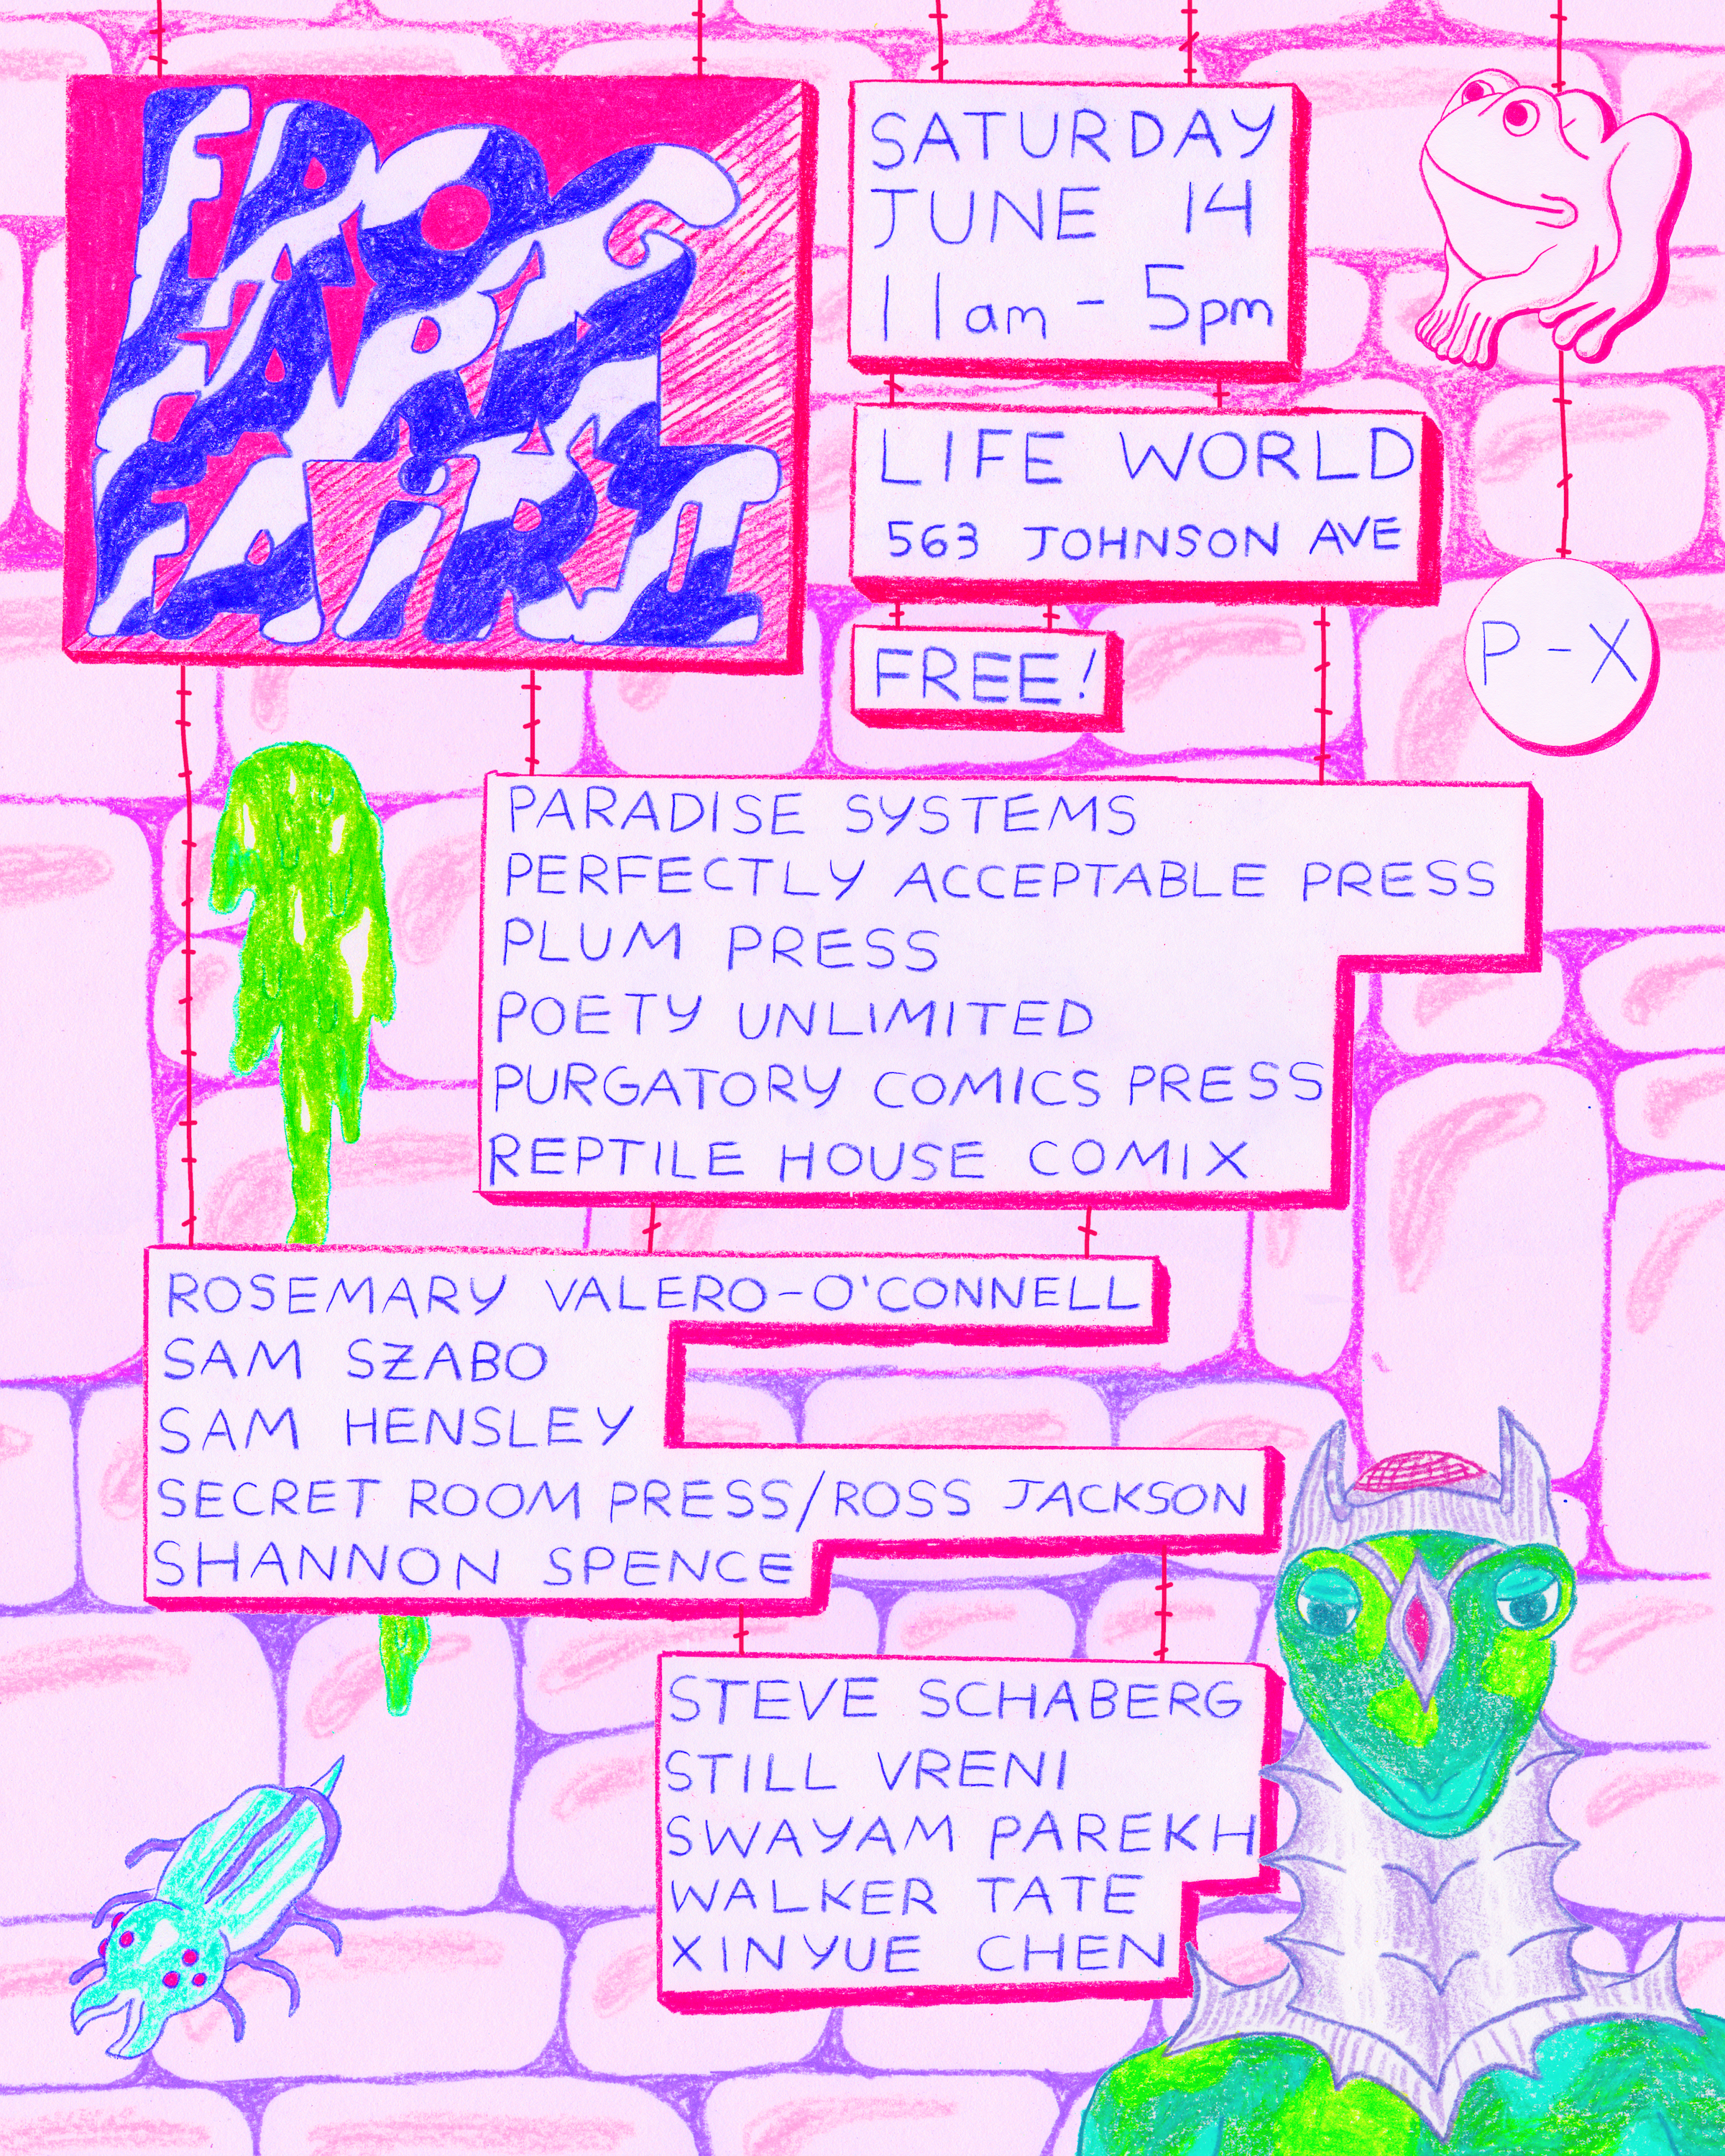 FROG
FARM
FAiR II
SATURDAY
JUNE 14
11am - 5pm
LIFE WORLD
563 JOHNSON AVE
FREE!
P - X
PARADISE SYSTEMS
PERFECTLY ACCEPTABLE PRESS
PLUM PRESS
POETY UNLIMITED
PURGATORY COMICS PRESS
REPTILE HOUSE COMIX
ROSEMARY VALERO-O'CONNELL
SAM SZABO
SAM HENSLEY
SECRET ROOM PRESS/ROSS JACKSON
SHANNON SPENCE
STEVE SCHABERG
STILL VRENI
SWAYAM PAREKH
WALKER TATE
XINYUE CHEN